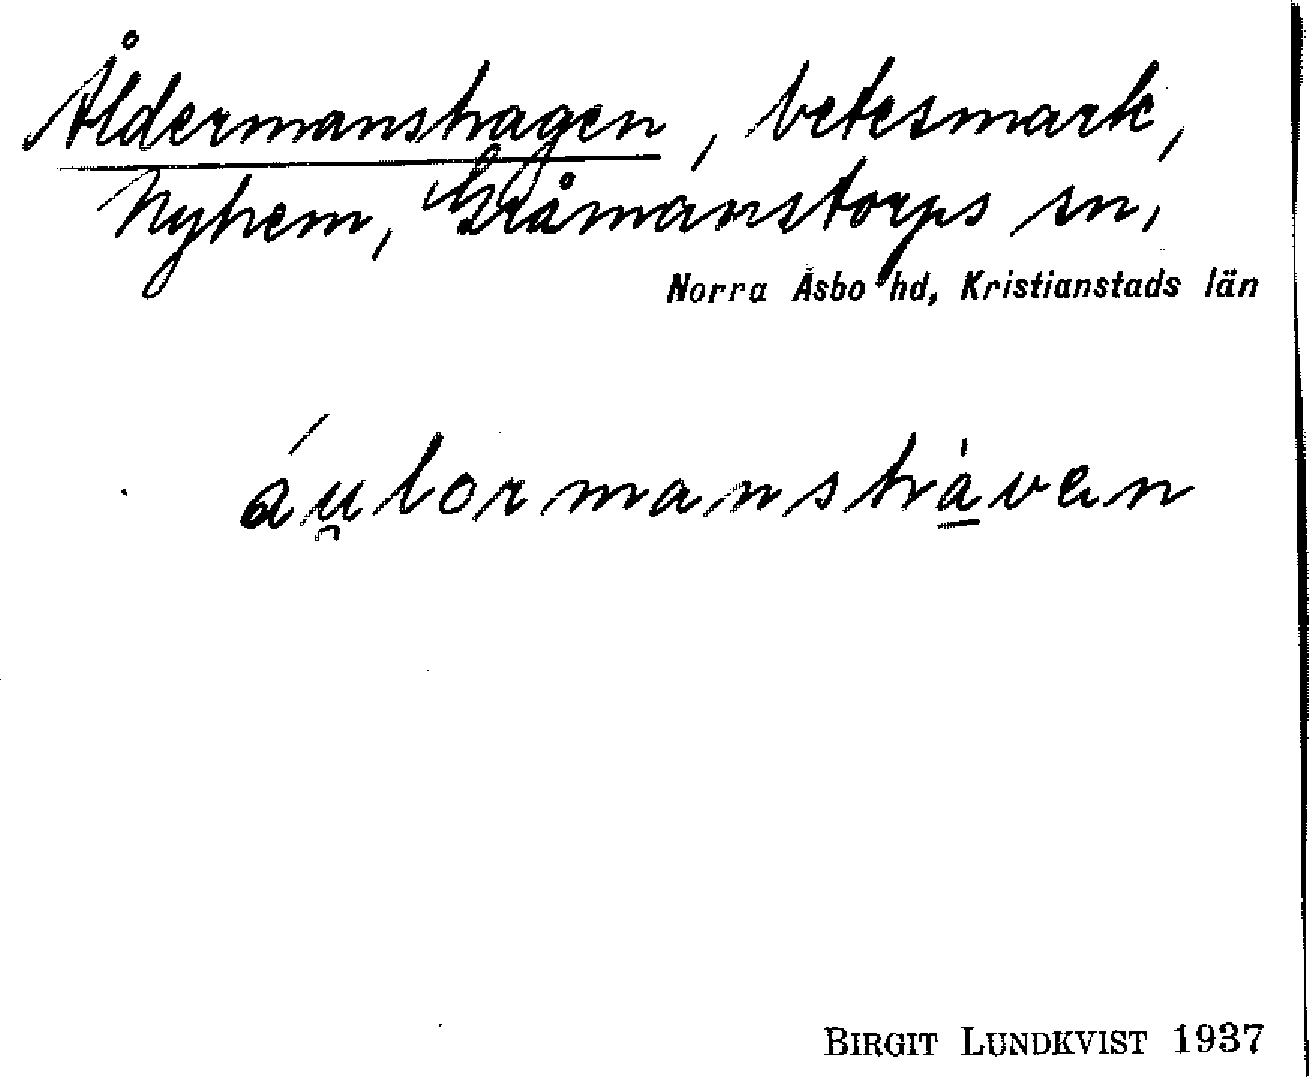 Åldermanshagen, betesmark,
Nyhem, Gråmanstorps sn,
Norra Åsbo hd, Kristianstads län
áu̯lormanshà̠ven
BIRGIT LUNDKVIST 1937